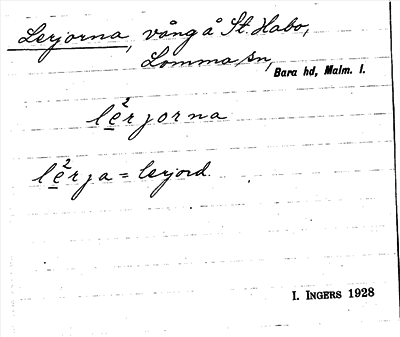 Lerjorna, vång å St. Habo,
Lomma sn,
Bara hd, Malm. l.
le²rjorna
le²rja = lerjord.
I. INGERS 1928